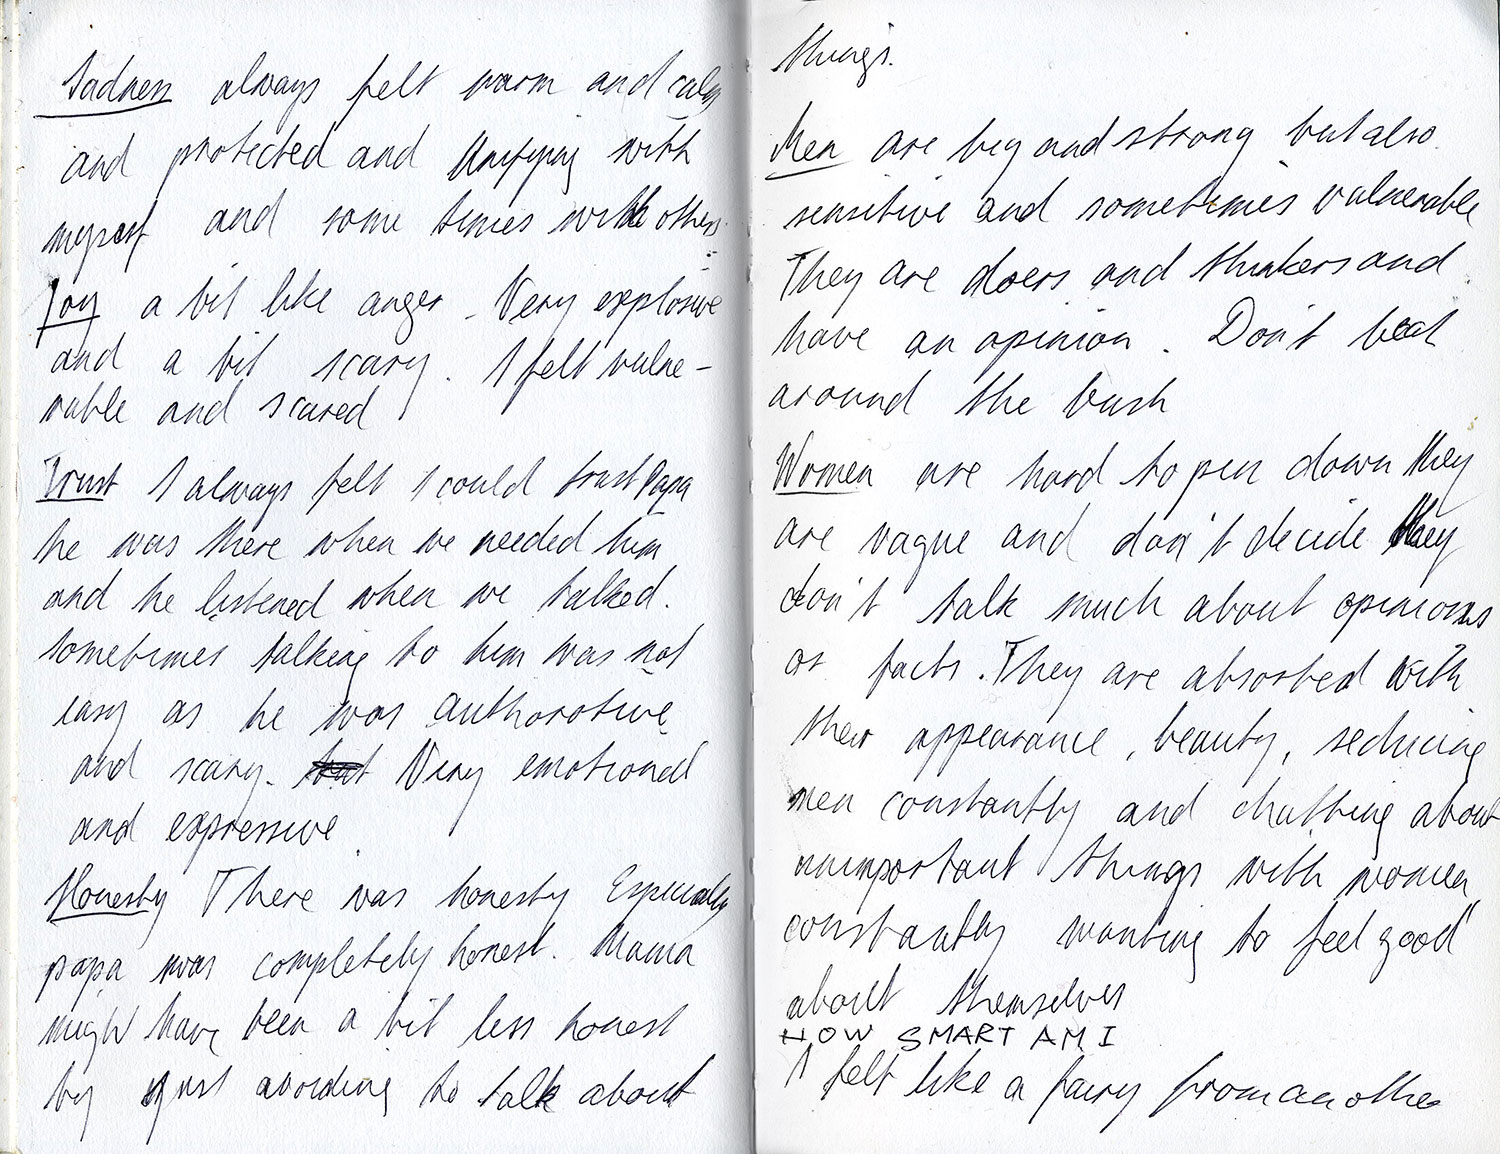 Sadness always felt warm and calm
and protected and unifying with
myself and some times with others.
Joy a bit like anger. Very explosive
and a bit scary. I felt vulne-
rable and scared
Trust I always felt I could trust Papa
he was there when we needed him
and he listened when we talked.
sometimes talking to him was not
easy as he was authorotive
and scary. but Very emotional
and expressive.
Honesty There was honesty Especially
papa was completely honest. Mama
might have been a bit less honest
by just avoiding to talk about
things.
Men are big and strong but also
sensitive and sometimes vulnerable
They are doers and thinkers and
have an opinion. Don't beat
around the bush
Women are hard to pin down they
are vague and don't decide they
don't talk much about opinions
or facts. They are absorbed with
their appearance, beauty, seducing
men constantly and chatting about
unimportant things with women,
constantly wanting to feel "good"
about themselves
HOW SMART AM I
I felt like a fairy from another